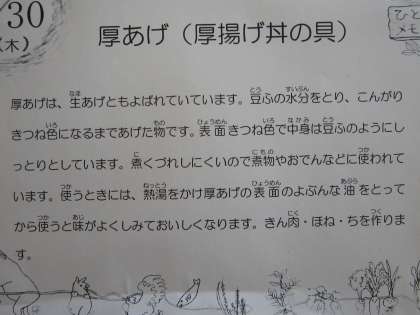 30
(木)
厚あげ（厚揚げ丼の具）
ひと
メモ
厚あげは、生あげともよばれていています。豆ふの水分をとり、こんがり
きつね色になるまであげた物です。表面きつね色で中身は豆ふのようにし
っとりとしています。煮くづれしにくいので煮物やおでんなどに使われて
います。使うときには、熱湯をかけ厚あげの表面のよぶんな油をとって
から使うと味がよくしみておいしくなります。きん肉・ほね・ちを作りま
す。